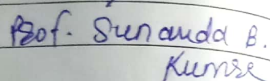 Prof. Sunanda B.
Kumse